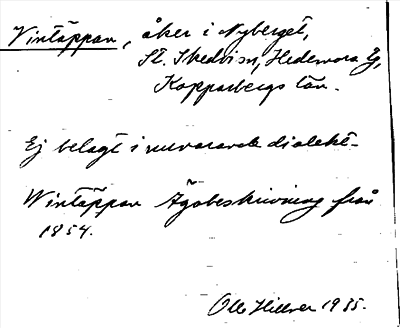 Vintäppan, åker i Nyberget,
St. Skedvi sn, Hedemora tg,
Kopparbergs län.
Ej belagt i nuvarande dialekt.
Wintäppan Ägobeskrivning från
1854.
Olle Hillver 1935.